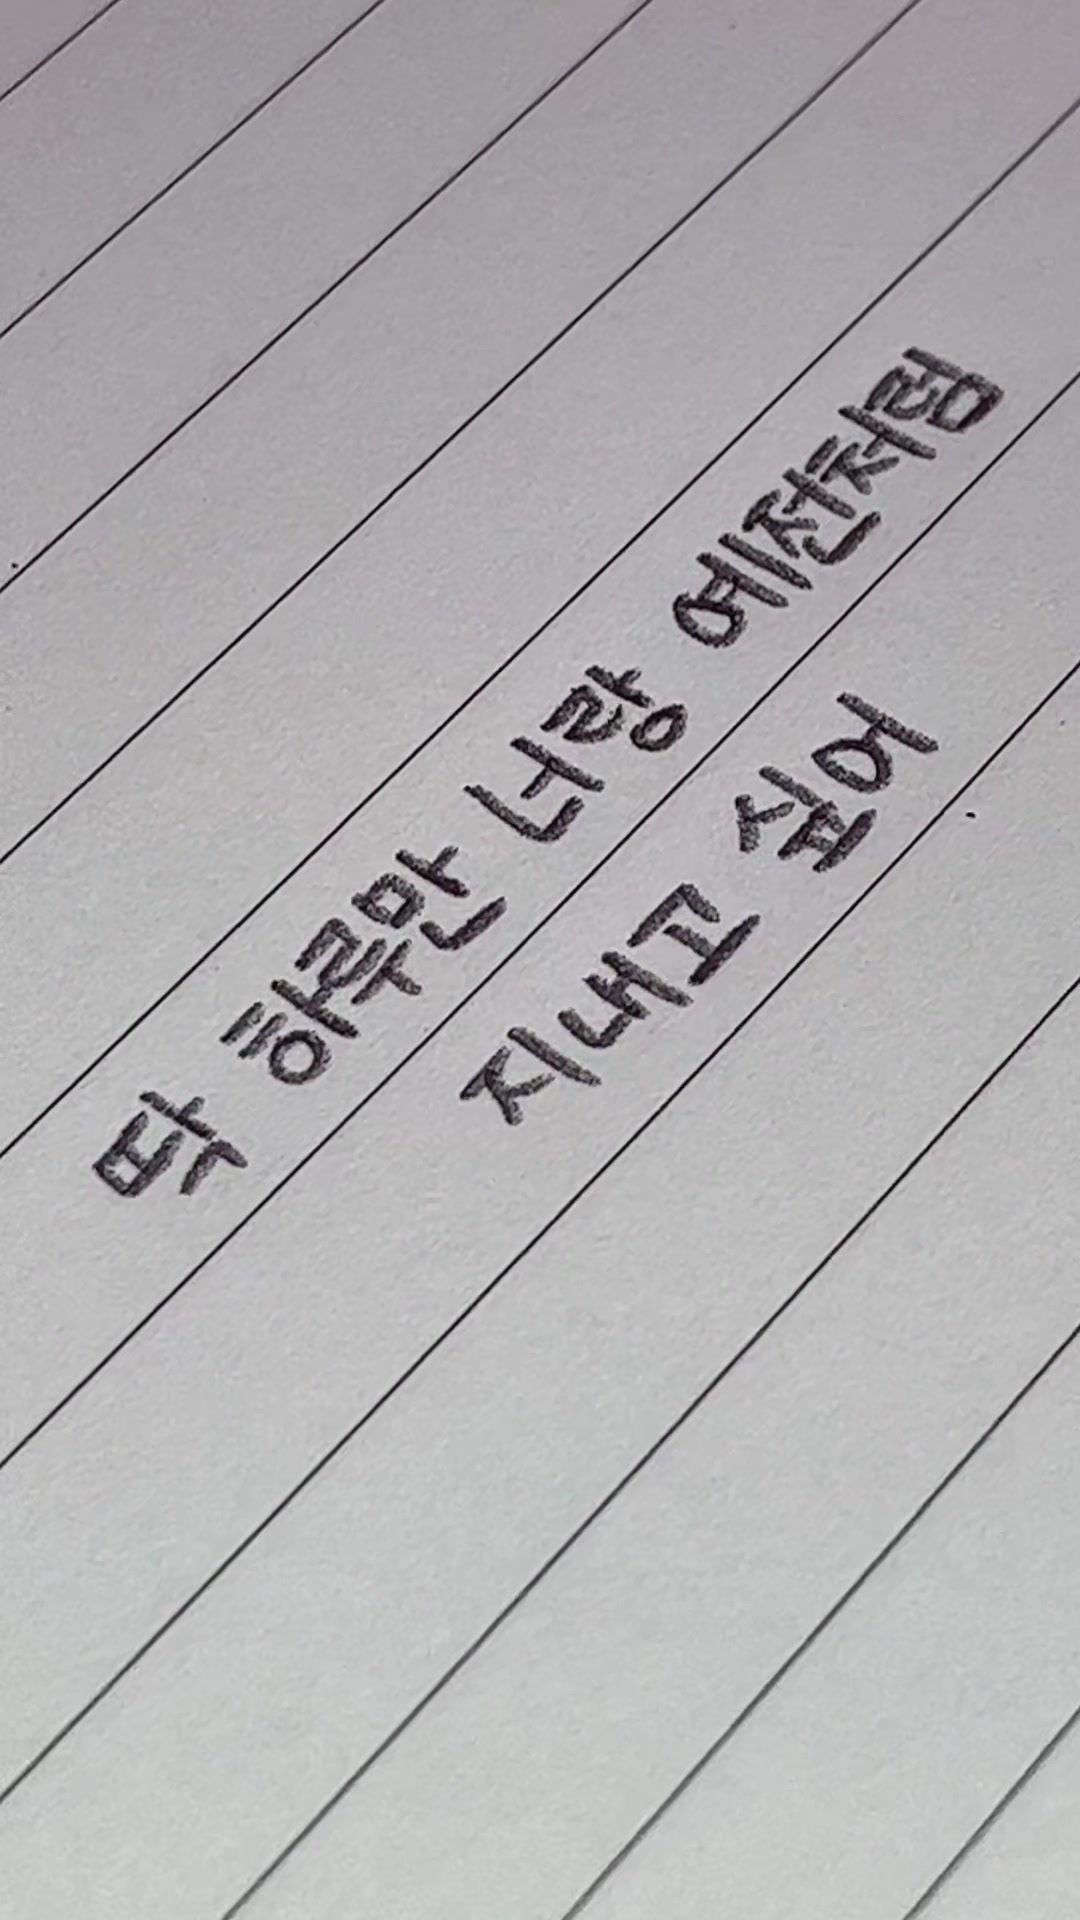 박 하루만 너랑 예전처럼
지내고 싶어